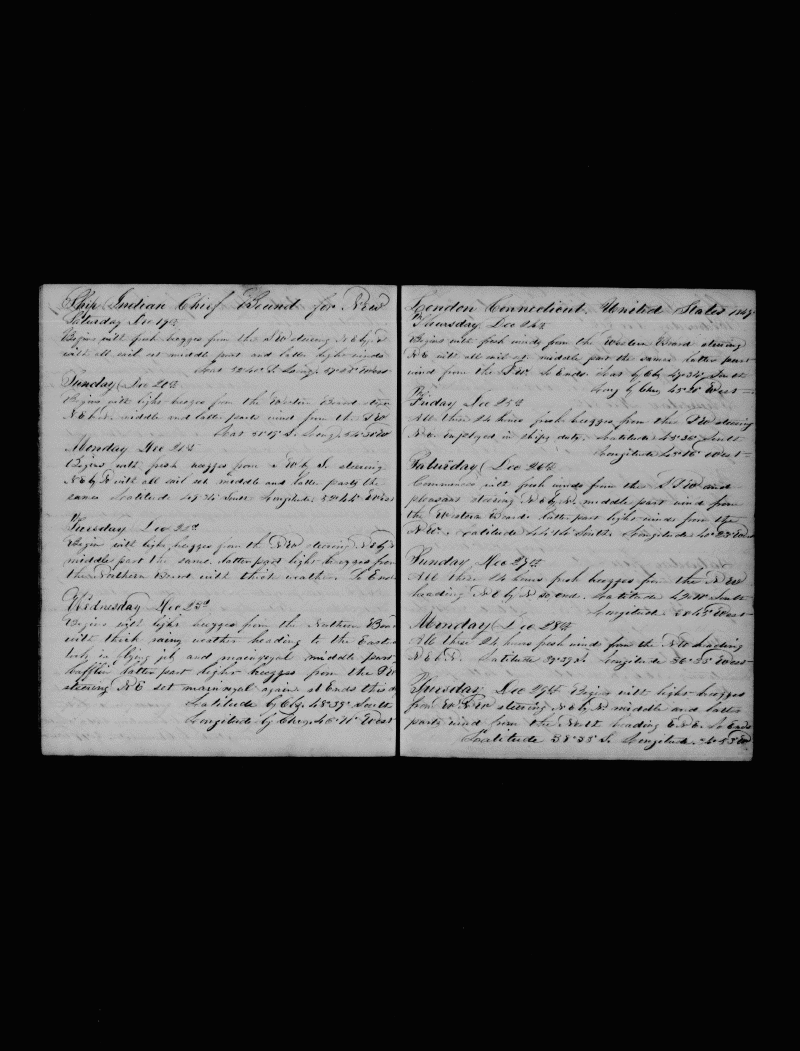 Ship Indian Chief Bound for New
Saturday Dec 19th
Begins with fresh breezes from the SW steering N E by N
with all sail set middle part and latter light winds
Lat 52°40' S. Long. West
Sunday Dec 20th
Begins with light breezes from the Western Board steer
N E b N middle and latter parts wind from the S W
Lat S. Long. W
Monday Dec 21st
Begins with fresh breezes from W by S steering
N E by N with all sail set middle and latter parts the
same Latitude South Longitude 52°44' West
Tuesday Dec 22d
Begin with light breezes from the N W steering
middle part the same. latter part light breezes from
the Northern Board with thick weather So Ends
Wednesday Dec 23d
Begins with light breezes from the Northern Board
with thick rainy weather heading to the East
took in flying jib and mainroyal middle part
baffling latter part light breezes from the
steering N E set mainroyal again So Ends this d
Latitude by Obs. 48°39' South
Longitude by Chro. 46°11' West
London Connecticut United States
Thursday Dec 24th
Begins with fresh winds from the Western Board steering
N E with all sail set middle part the same latter part
wind from the S W. So Ends. Lat by Obs 47°34' South
Long by Chro. West
Friday Dec 25th
All these 24 hours fresh breezes from the S W steering
N E employed in ships duty. Latitude 45°36' South
Longitude West
Saturday Dec 26th
Commences with fresh winds from the S S W and
pleasant steering N E by N. middle part wind from
the Western Board latter part light winds from the
N W. Latitude 44°14' South Longitude West
Sunday Dec 27th
All these 24 hours fresh breezes from the N W
heading N E by N so end. Latitude South
Longitude West
Monday Dec 28th
All these 24 hours fresh winds from the N W heading
N E b N. Latitude S. Longitude West
Tuesday Dec 29th Begins with light breezes
from W.N.W steering N E by N middle and latter
parts wind from the North heading E.N.E. So Ends
Latitude 38°35' S. Longitude W